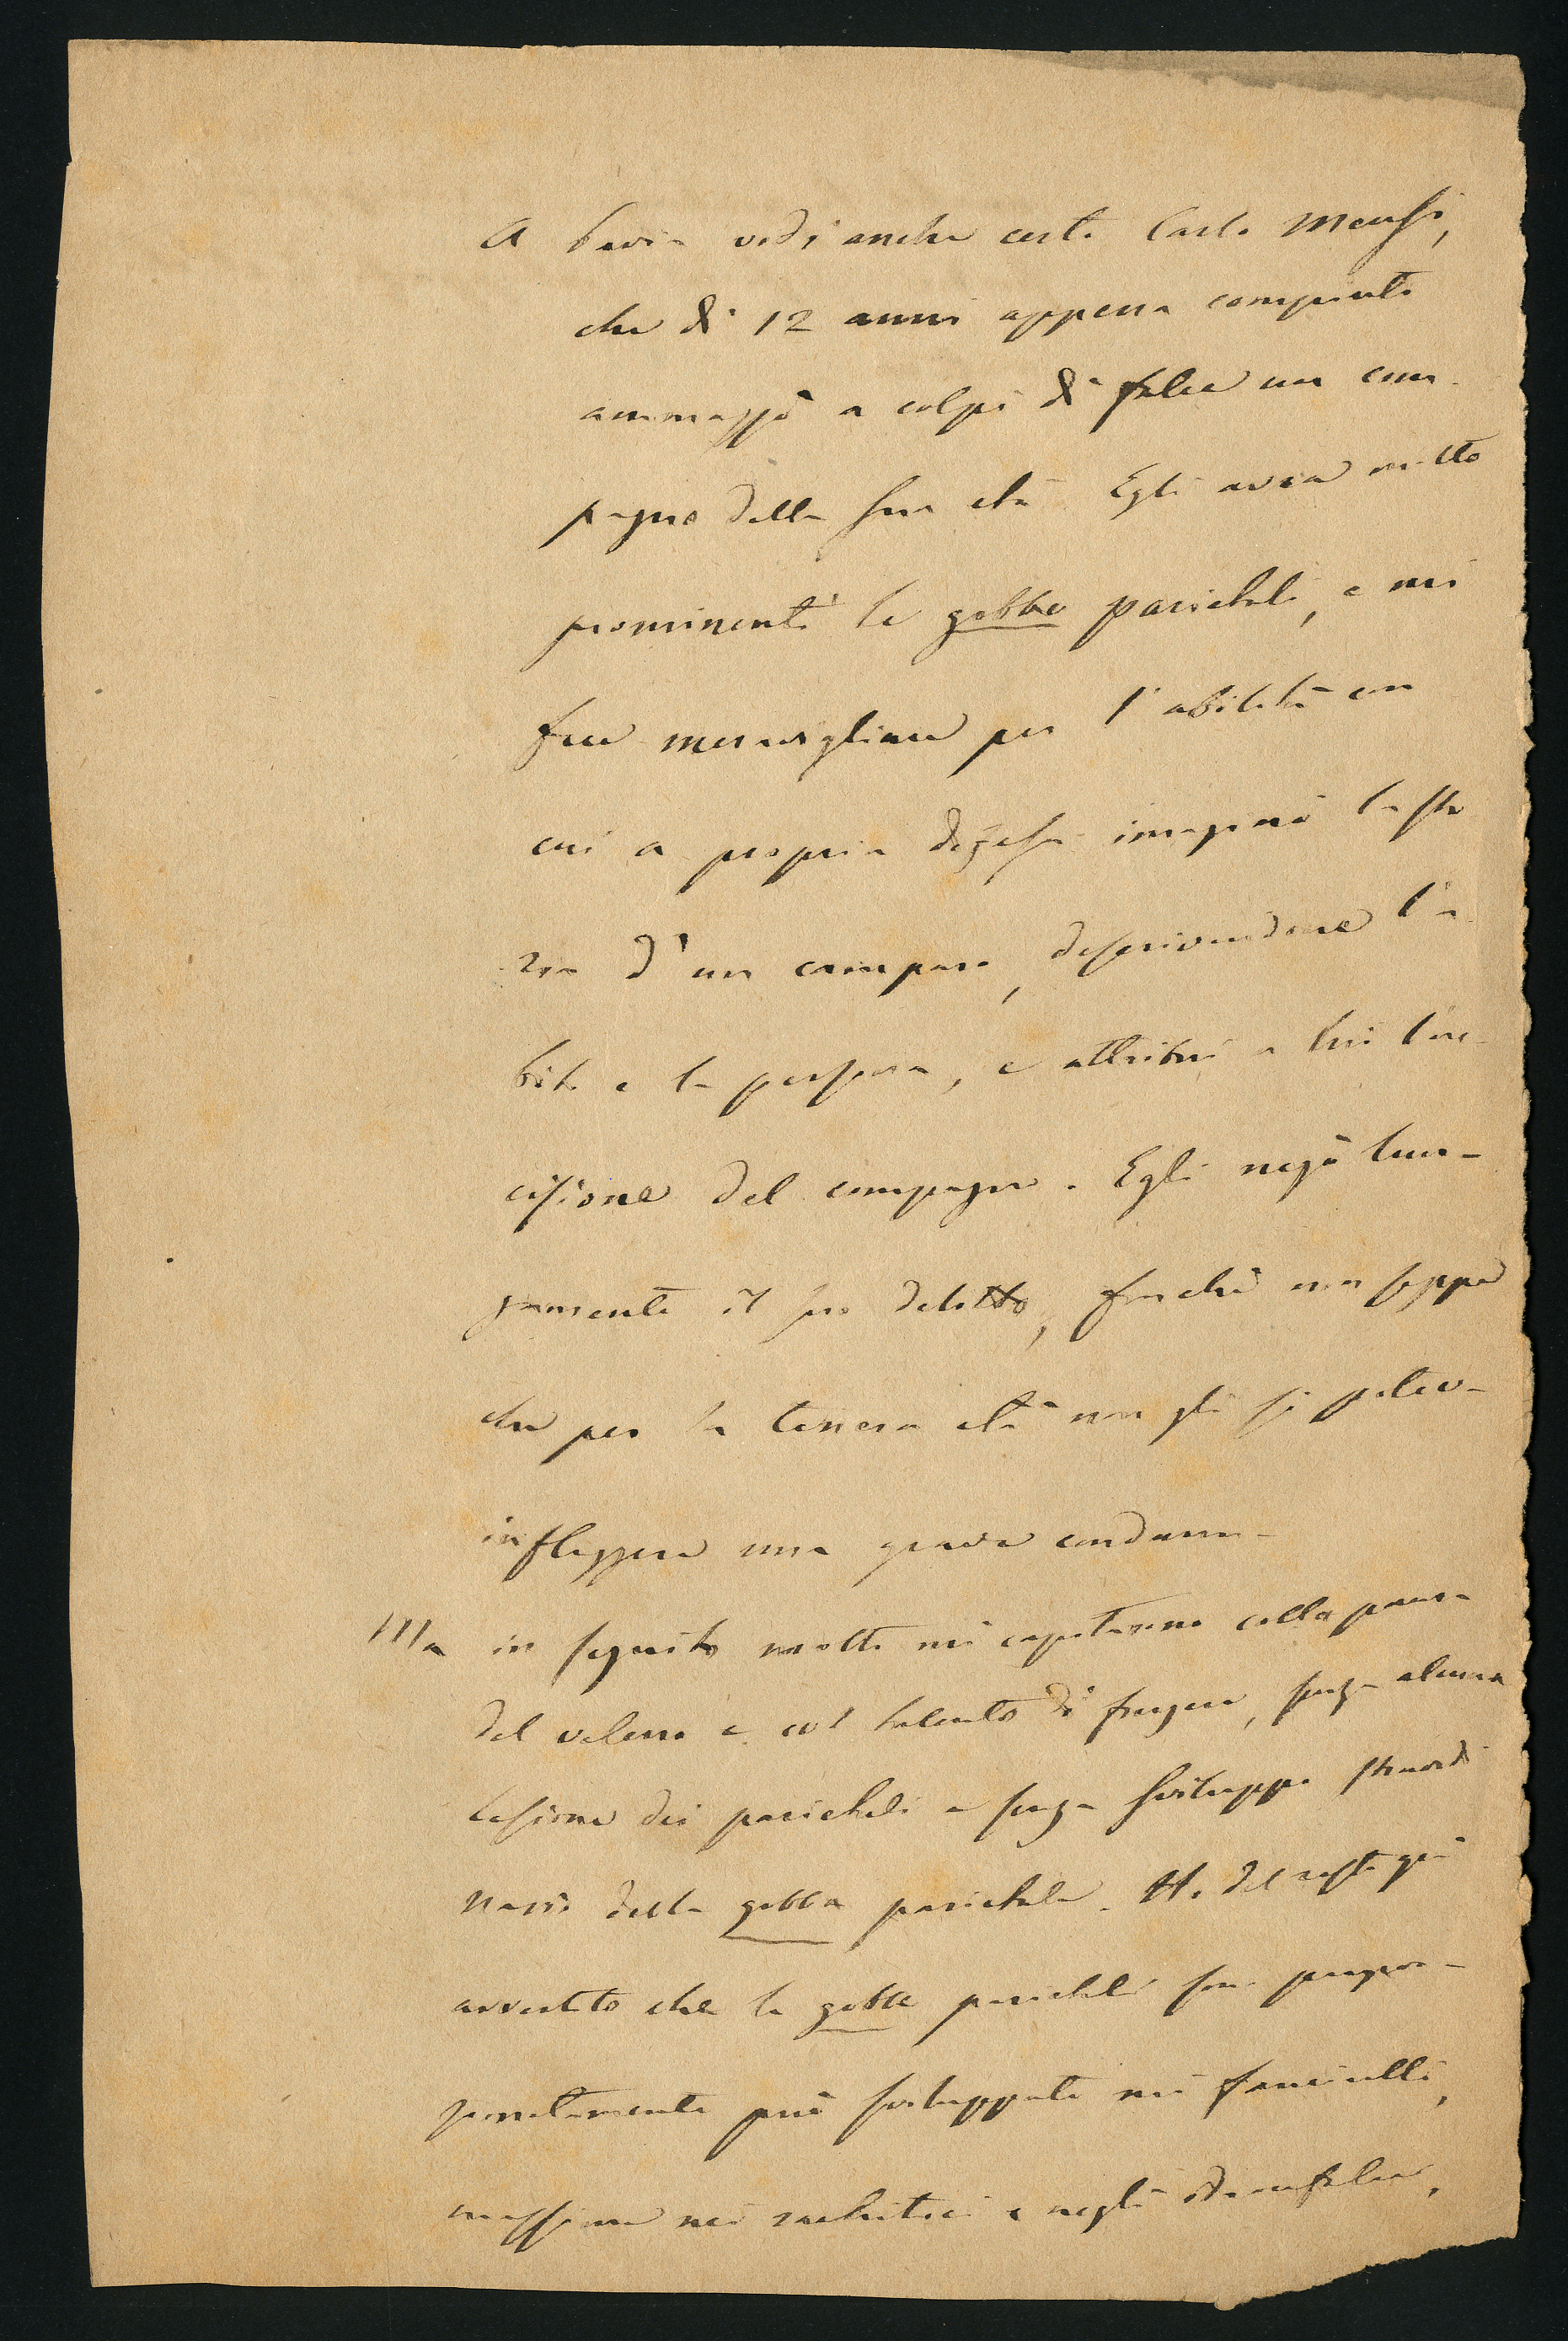 A Pavia vidi anche certo Carlo Mensi,
che di 12 anni appena compiuti
ammazzò a colpi di falce un com-
pagno della sua età. Egli avea molto
prominenti le gobbe parietali, e mi
fece meravigliare per l'abilità con
cui a propria difesa imaginò la sto
ria d'un compare, descrivendone l'a-
bito e la persona, e attribuì a lui l'uc-
cisione del compagno. Egli negò lun-
gamente il suo delitto, finchè non seppe
che per la tenera età non gli si poteva
infliggere una grave condanna.
Ma in seguito molti mi capitarono colla paura
del veleno e col talento di fingere, senza alcuna
lesione dei parietali e senza sviluppo straordi
nario della gobba parietale. Ho del resto già
avvertito che le gobbe parietali son propor-
zionatamente più sviluppate nei fanciulli,
massime nei rachitici e negli idrocefalici,